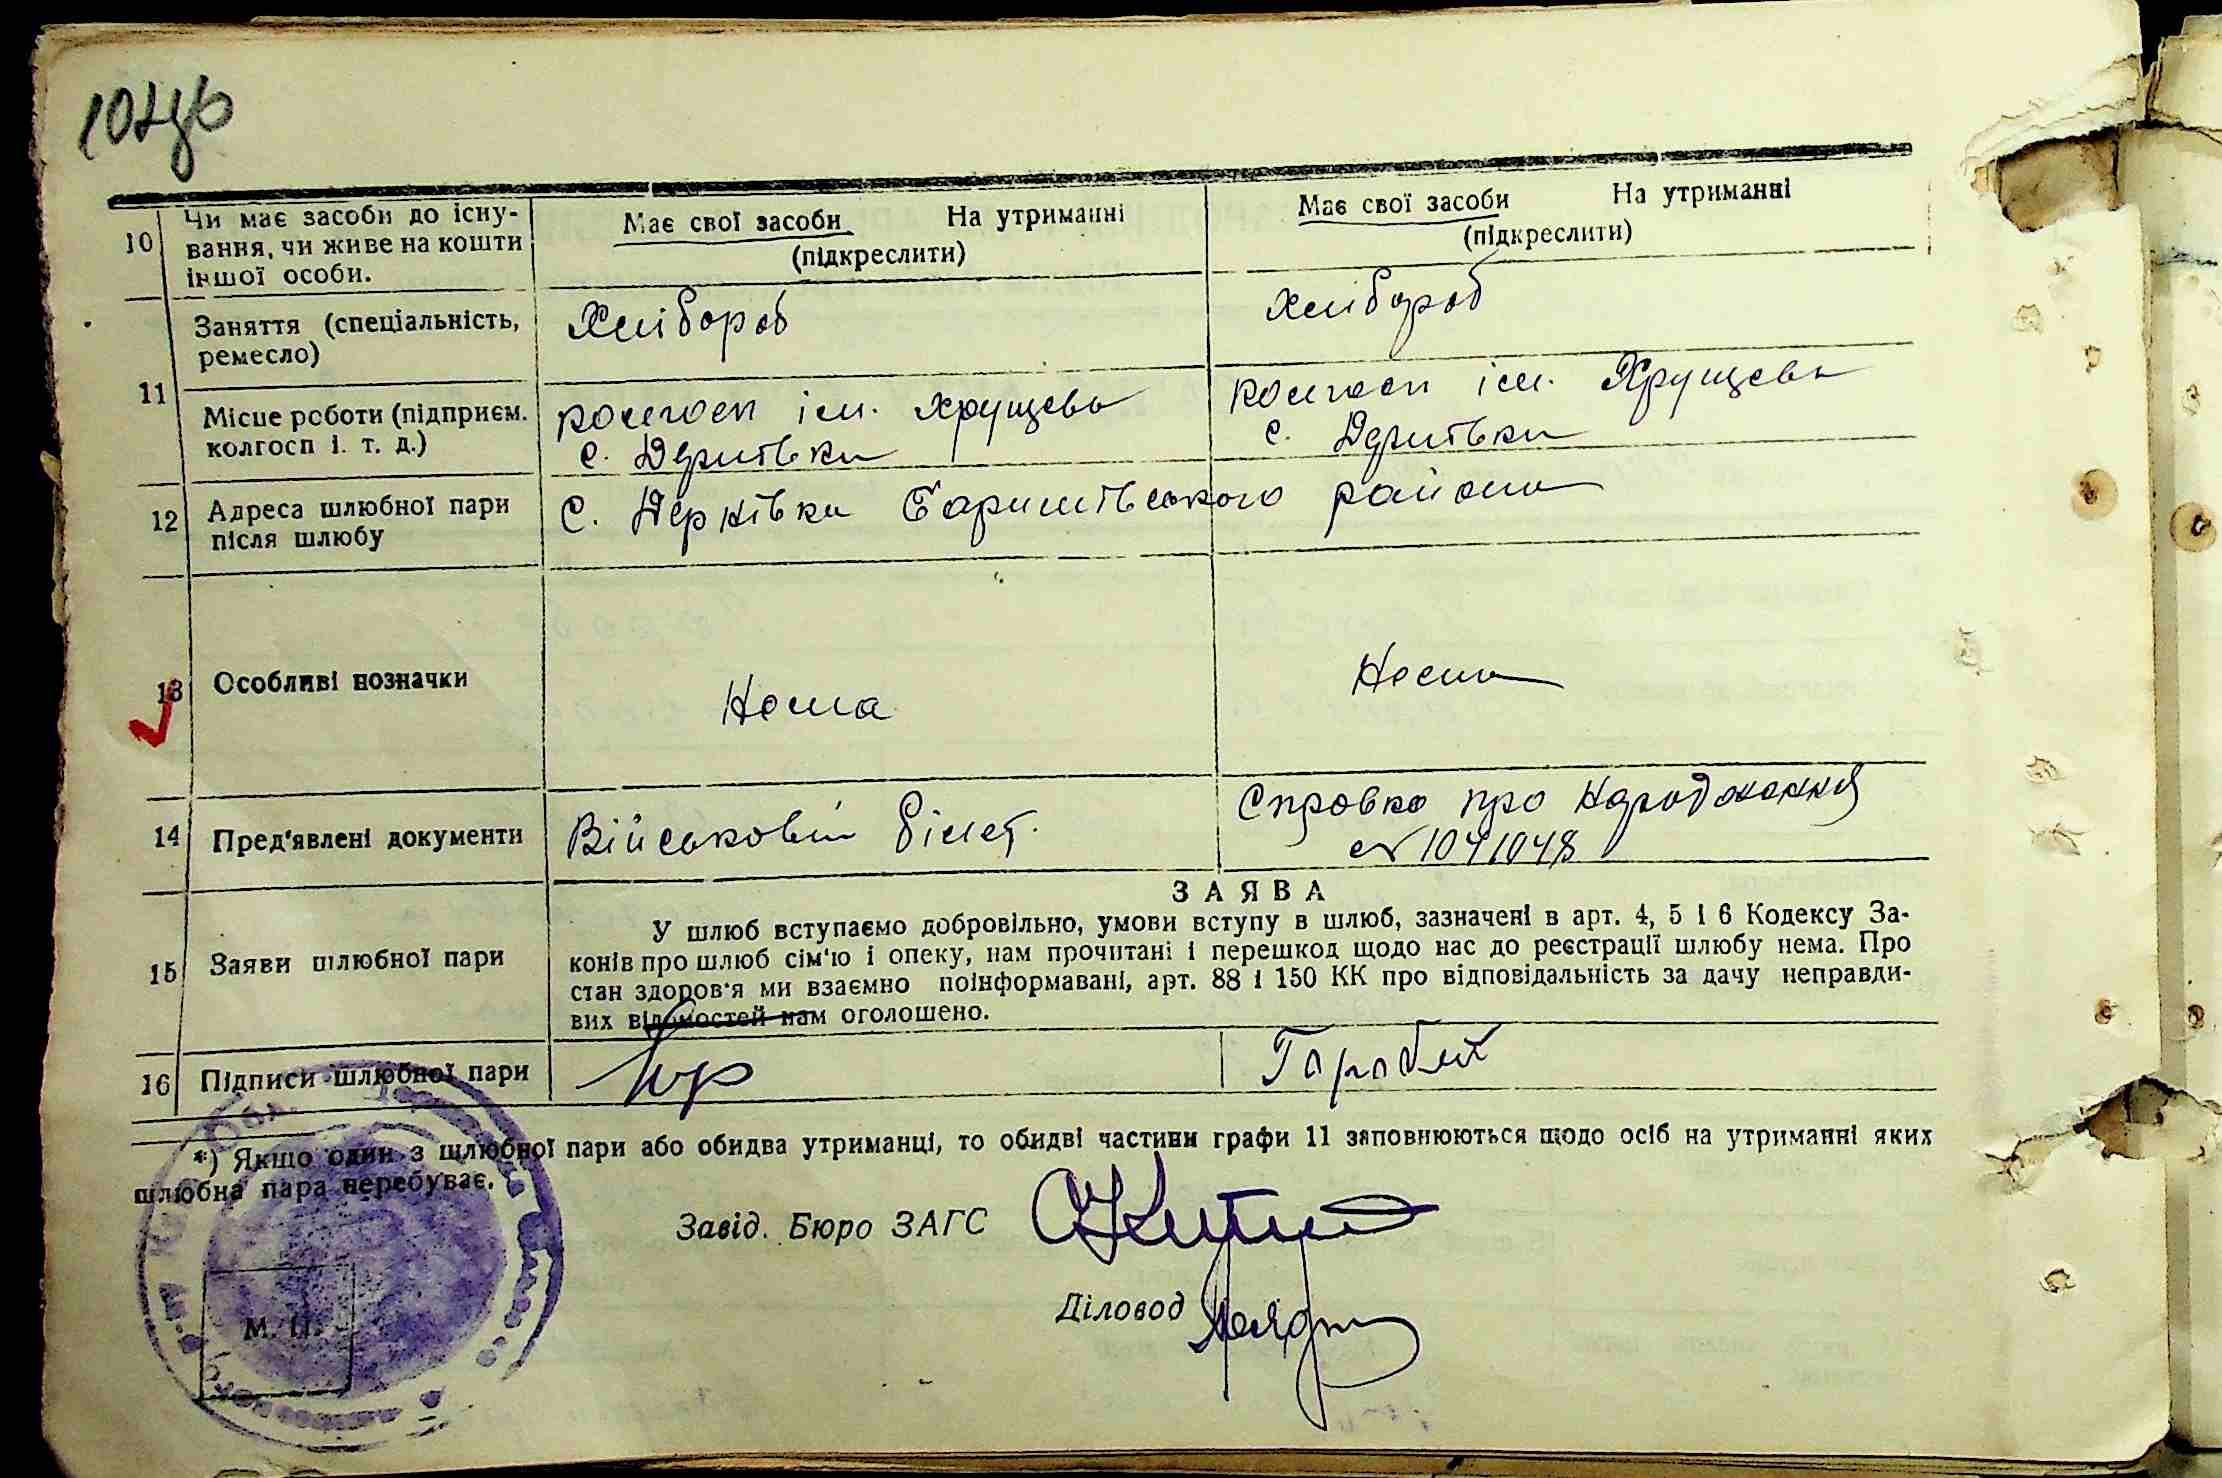 10
Чи має засоби до існу-
вання, чи живе на кошти
іншої особи.
Має свої засоби На утриманні
(підкреслити)
Має свої засоби На утриманні
(підкреслити)
11
Заняття (спеціальність,
ремесло)
Хлібороб
хлібороб
Місце роботи (підприєм.
колгосп і. т. д.)
колгосп ім. Хрущева
с. Дернівка
колгосп ім. Хрущева
с. Дернівка
12
Адреса шлюбної пари
після шлюбу
с. Дернівка Баришівського району
13
Особливі позначки
Нема
Нема
14
Пред'явлені документи
Військовий білет.
Справка про народження
№ 1041048
15
Заяви шлюбної пари
ЗАЯВА
У шлюб вступаємо добровільно, умови вступу в шлюб, зазначені в арт. 4, 5 і 6 Кодексу За-
конів про шлюб сім'ю і опеку, нам прочитані і перешкод щодо нас до реєстрації шлюбу нема. Про
стан здоров'я ми взаємно поінформавані, арт. 88 і 150 КК про відповідальність за дачу неправди-
вих відомостей нам оголошено.
16
Підписи шлюбної пари
*) Якщо один з шлюбної пари або обидва утриманці, то обидві частини графи 11 заповнюються щодо осіб на утриманні яких
шлюбна пара перебуває.
Завід. Бюро ЗАГС
Діловод
М. П.